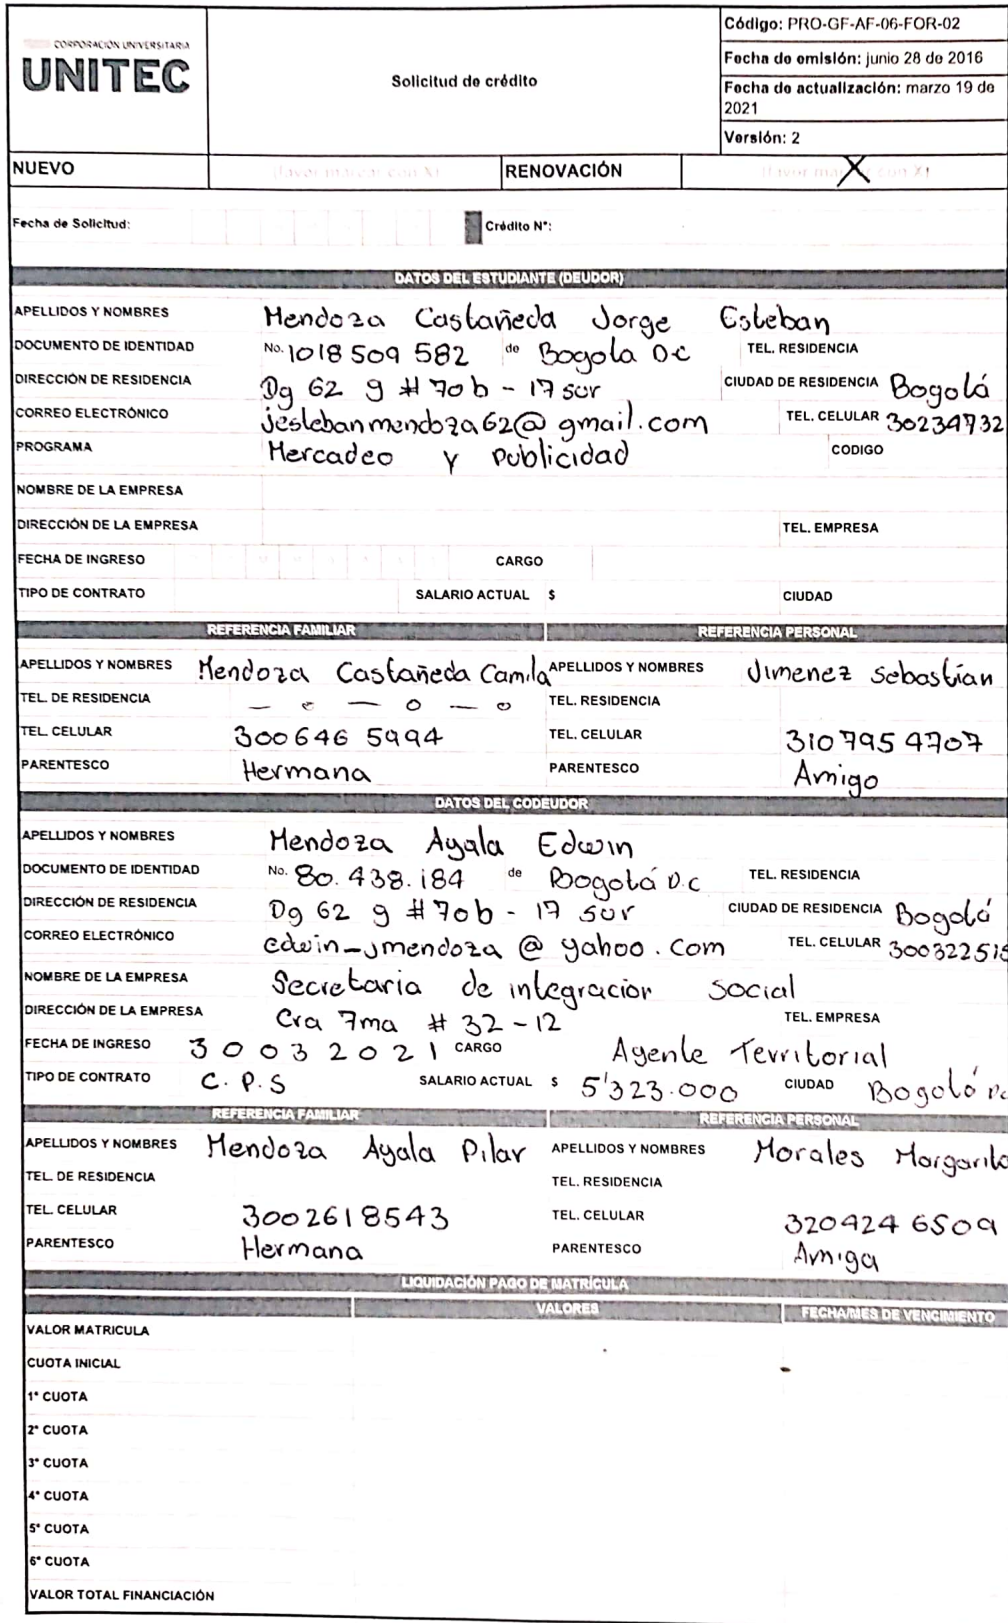 CORPORACIÓN UNIVERSITARIA
UNITEC
Solicitud de crédito
Código: PRO-GF-AF-06-FOR-02
Fecha de emisión: junio 28 de 2016
Fecha de actualización: marzo 19 de 2021
Versión: 2
NUEVO (favor marcar con X) RENOVACIÓN (favor marcar con X) X
Fecha de Solicitud: Crédito N°:
DATOS DEL ESTUDIANTE (DEUDOR)
APELLIDOS Y NOMBRES Mendoza Castañeda Jorge Esteban
DOCUMENTO DE IDENTIDAD No. 1018 509 582 de Bogota D.C TEL. RESIDENCIA
DIRECCIÓN DE RESIDENCIA Dg 62 g # 70b - 17 sur CIUDAD DE RESIDENCIA Bogotá
CORREO ELECTRÓNICO jestebanmendoza62@gmail.com TEL. CELULAR 30234732
PROGRAMA Mercadeo y Publicidad CODIGO
NOMBRE DE LA EMPRESA
DIRECCIÓN DE LA EMPRESA TEL. EMPRESA
FECHA DE INGRESO CARGO
TIPO DE CONTRATO SALARIO ACTUAL $ CIUDAD
REFERENCIA FAMILIAR REFERENCIA PERSONAL
APELLIDOS Y NOMBRES Mendoza Castañeda Camila APELLIDOS Y NOMBRES Jimenez Sebastian
TEL. DE RESIDENCIA — o — o — o TEL. RESIDENCIA
TEL. CELULAR 300 646 5994 TEL. CELULAR 310 795 4707
PARENTESCO Hermana PARENTESCO Amigo
DATOS DEL CODEUDOR
APELLIDOS Y NOMBRES Mendoza Ayala Edwin
DOCUMENTO DE IDENTIDAD No. 80.438.184 de Bogotá D.C TEL. RESIDENCIA
DIRECCIÓN DE RESIDENCIA Dg 62 g # 70b - 17 sur CIUDAD DE RESIDENCIA Bogotá
CORREO ELECTRÓNICO edwin_jmendoza@yahoo.com TEL. CELULAR 300322515
NOMBRE DE LA EMPRESA Secretaria de integracion social
DIRECCIÓN DE LA EMPRESA Cra 7ma # 32-12 TEL. EMPRESA
FECHA DE INGRESO 30032021 CARGO Agente Territorial
TIPO DE CONTRATO C.P.S SALARIO ACTUAL $ 5'323.000 CIUDAD Bogotá D.C
REFERENCIA FAMILIAR REFERENCIA PERSONAL
APELLIDOS Y NOMBRES Mendoza Ayala Pilar APELLIDOS Y NOMBRES Morales Margarita
TEL. DE RESIDENCIA TEL. RESIDENCIA
TEL. CELULAR 3002618543 TEL. CELULAR 320424 6509
PARENTESCO Hermana PARENTESCO Amiga
LIQUIDACIÓN PAGO DE MATRÍCULA
VALORES FECHA/MES DE VENCIMIENTO
VALOR MATRICULA
CUOTA INICIAL
1ª CUOTA
2ª CUOTA
3ª CUOTA
4ª CUOTA
5ª CUOTA
6ª CUOTA
VALOR TOTAL FINANCIACIÓN